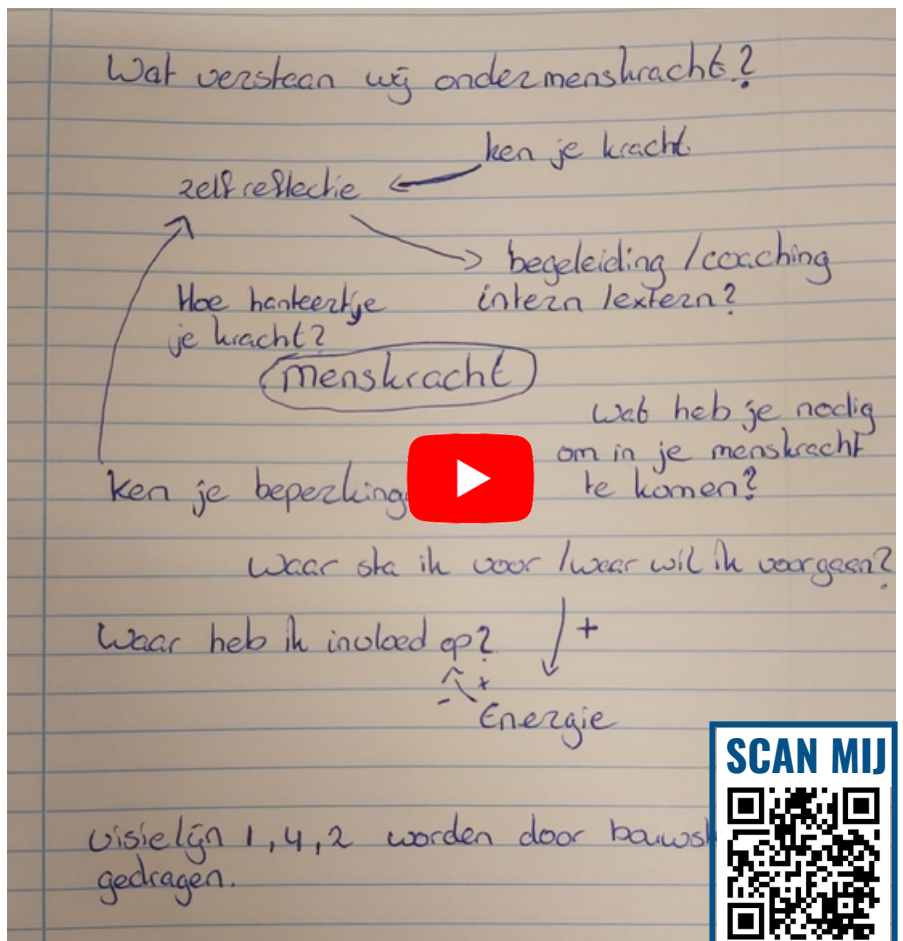 Wat verstaan wij onder menskracht?
ken je kracht
zelfreflectie
begeleiding / coaching
intern / extern?
Hoe hanteert je
je kracht?
menskracht
Wat heb je nodig
om in je menskracht
te komen?
ken je beperking
Waar sta ik voor / waar wil ik voorgaan?
+
Waar heb ik invloed op?
- +
Energie
SCAN MIJ
visielijn 1, 4, 2 worden door
gedragen.